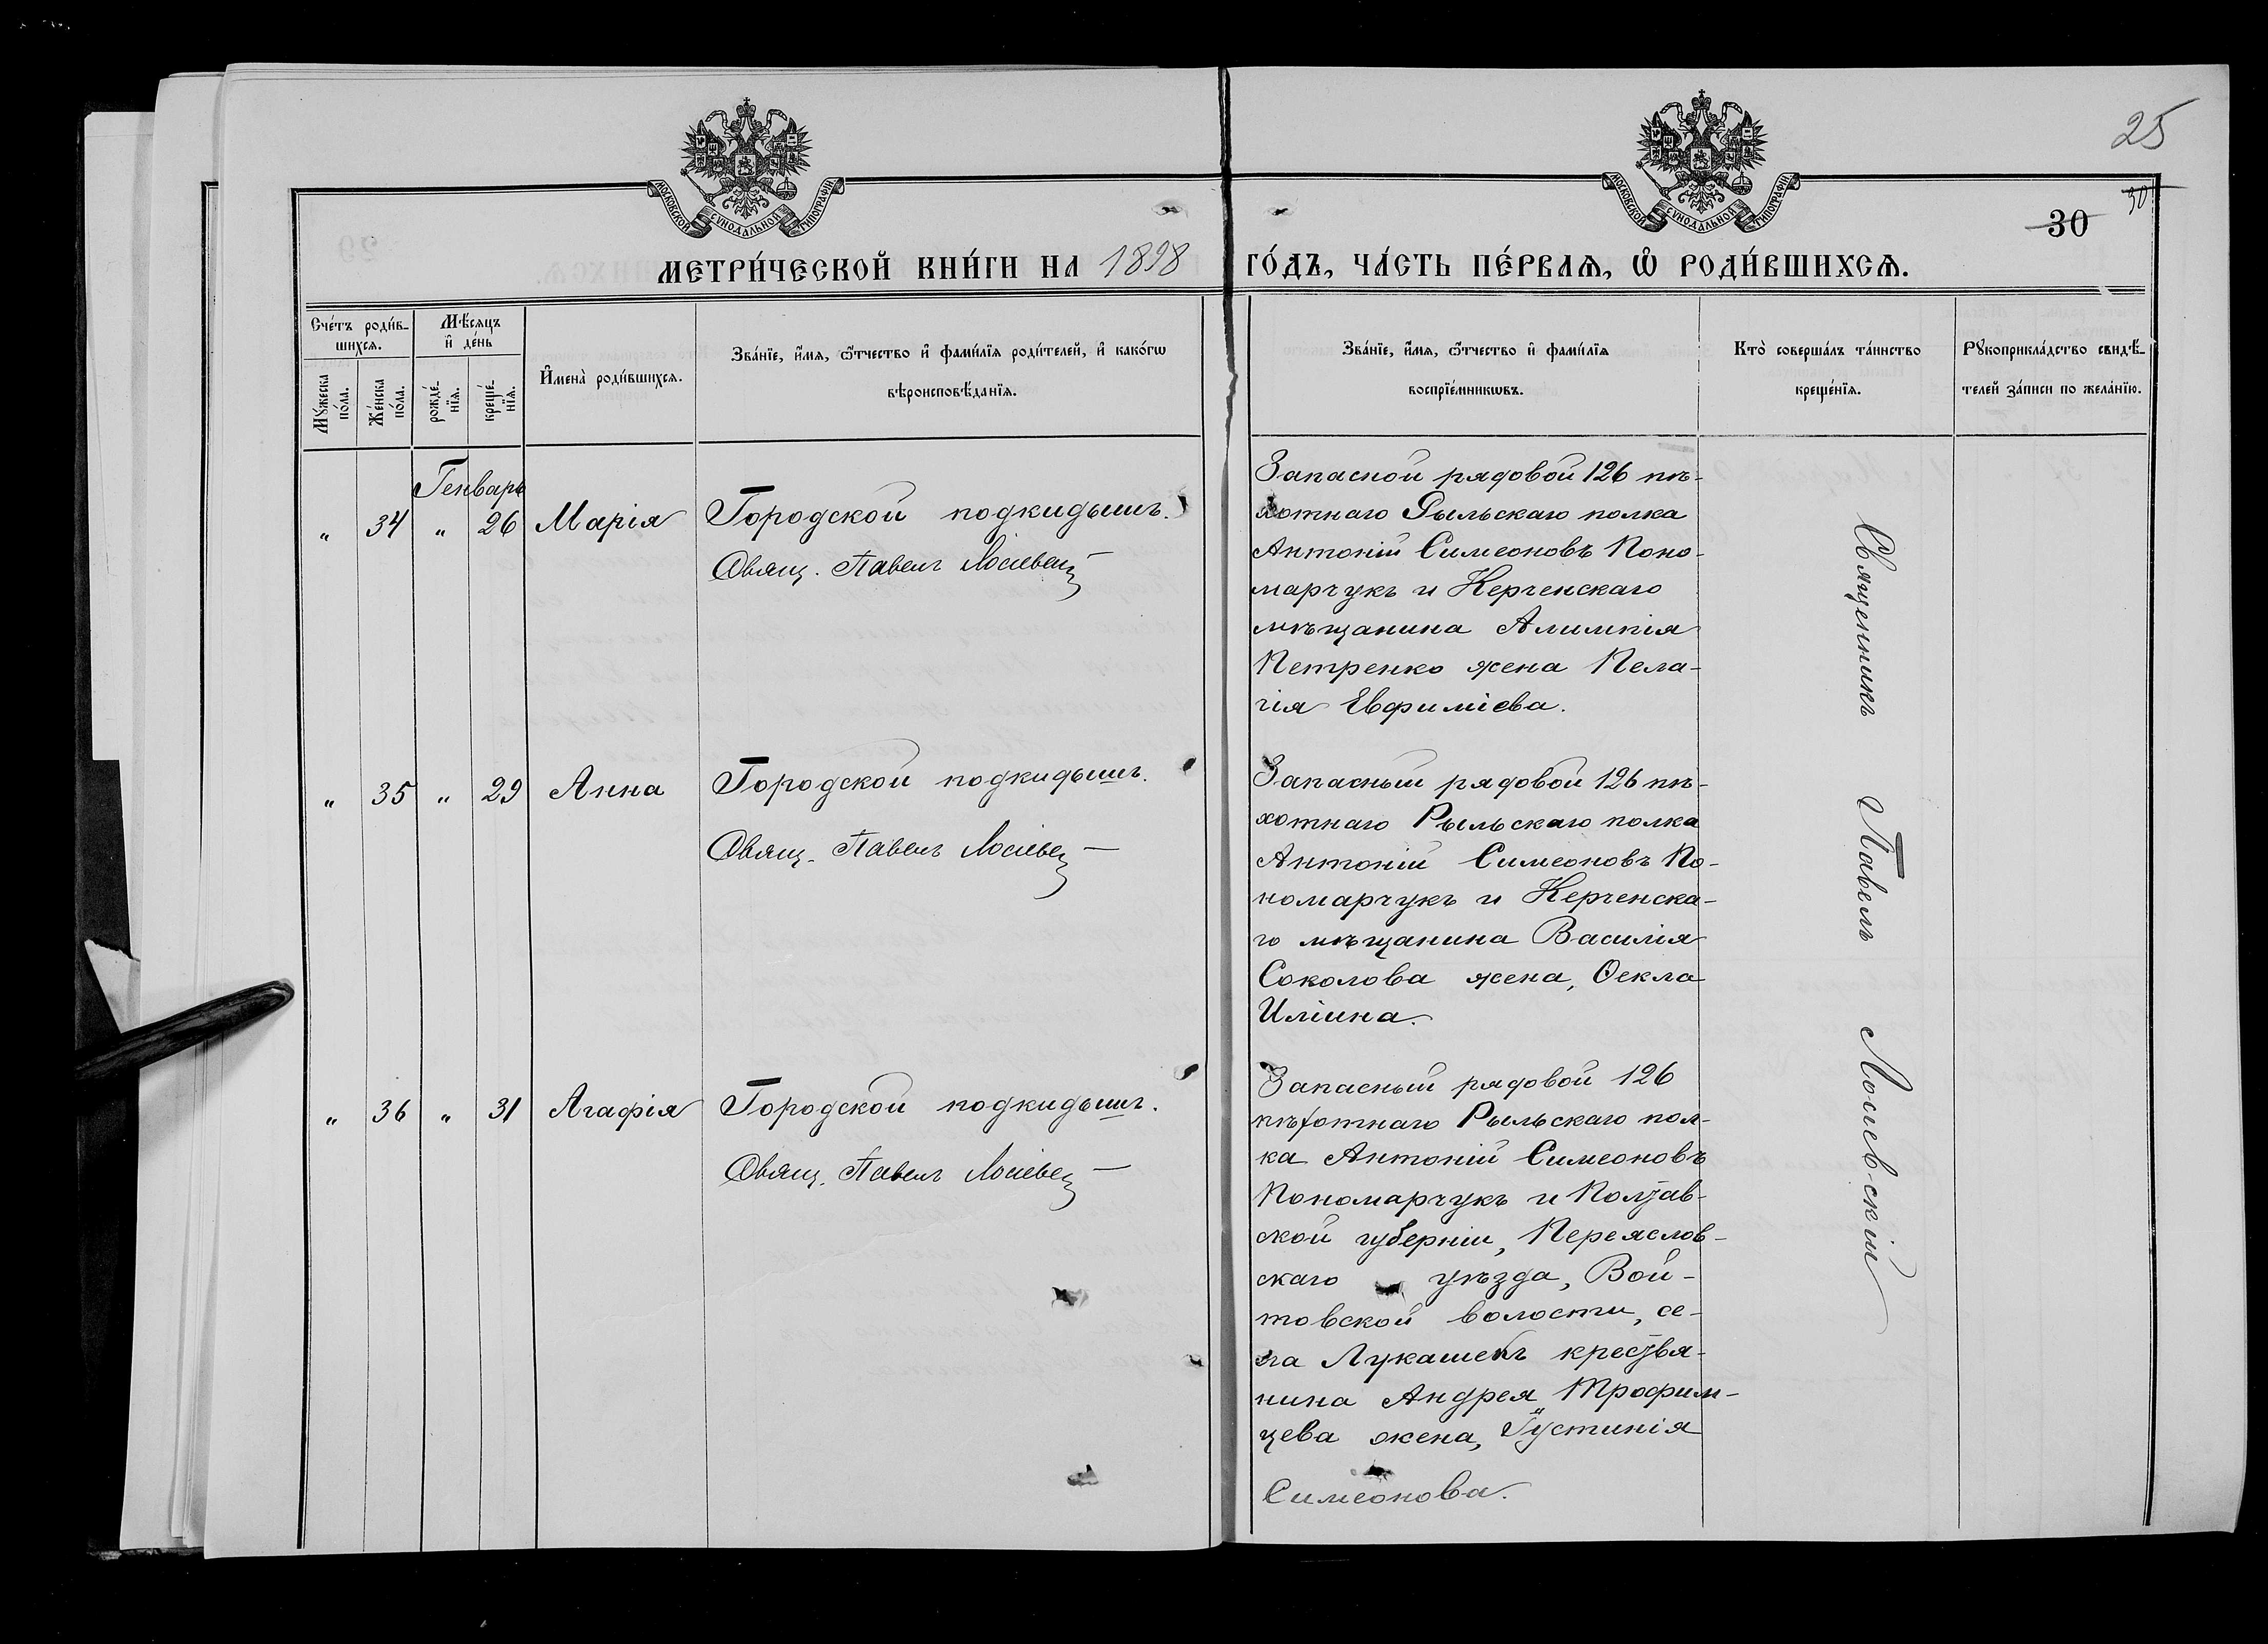 25
30
30
МОСКОВСКОЙ СѴНОДАЛЬНОЙ ТИПОГРАФІИ
МОСКОВСКОЙ СѴНОДАЛЬНОЙ ТИПОГРАФІИ
МЕТРИ́ЧЕСКОЙ КНИ́ГИ НА 1898 ГО́ДЪ, ЧА́СТЬ ПЕ́РВАѦ, Ѡ҆ РОДИ́ВШИХСѦ.
Сче́тъ роди́в-
шихсѧ.
Мѣ́сяцъ
и҆ де́нь
Мꙋжеска
по́ла.
Же́нска
по́ла.
рожде́-
нїѧ.
креще́-
нїѧ.
И҆мена̀ роди́вшихсѧ.
Зва́нїе, и҆́мѧ, ѻ҆́тчество и҆ фами́лїѧ роди́телей, и҆ како́гѡ
вѣроисповѣ́данїѧ.
Зва́нїе, и҆́мѧ, ѻ҆́тчество и҆ фами́лїѧ
воспрїе́мникѡвъ.
Кто̀ соверша́лъ та́инство
креще́нїѧ.
Рꙋкоприкла́дство свидѣ́-
телей за́писи по жела́нїю.
Генварь
„ 34 „ 26 Марія Городской подкидышъ.
Свящ. Павелъ Лосіевс
Запасной рядовой 126 пѣ-
хотнаго Рыльскаго полка
Антоній Симеоновъ Поно-
марчукъ и Керченскаго
мѣщанина Алимпія
Петренко жена Пела-
гія Евфиміева.
„ 35 „ 29 Анна Городской подкидышъ.
Свящ. Павелъ Лосіевс
Запасный рядовой 126 пѣ-
хотнаго Рыльскаго полка
Антоній Симеоновъ По-
номарчукъ и Керченска-
го мѣщанина Василія
Соколова жена, Ѳекла
Иліина.
„ 36 „ 31 Агафія Городской подкидышъ.
Свящ. Павелъ Лосіевс
Запасный рядовой 126
пѣхотнаго Рыльскаго пол-
ка Антоній Симеоновъ
Пономарчукъ и Полтав-
ской губерніи, Переяслов-
скаго уѣзда, Вой-
товской волости, се-
ла Лукашевъ крестья-
нина Андрея Трофим-
цева жена, Іустинія
Симеонова.
Священникъ Павелъ Лосіевскій